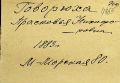 Говорюха
Прасковья Никифо-
ровна
1883г.
М-Морская 80.